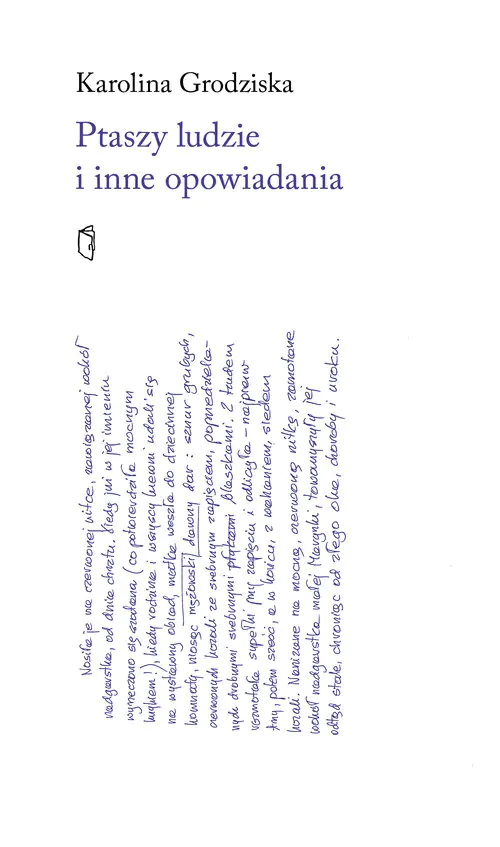 Karolina Grodziska
Ptaszy ludzie
i inne opowiadania
Nosiła je na czerwonej nitce, zawiązanej wokół
nadgarstka, od dnia chrztu. Kiedy już w jej imieniu
wyrzeczono się szatana (co potwierdziła mocnym
krzykiem!), kiedy rodzina i wszyscy krewni udali się
na wystawny obiad, matka weszła do dziecinnej
komnaty, niosąc mężowski dawny dar: sznur grubych,
czerwonych korali ze srebrnym zapięciem, poprzedziela-
nych drobnymi srebrnymi blaszkami. Z trudem
rozmotała supełki przy zapięciu i odliczyła – najpierw
trzy, potem sześć, a w końcu, z wahaniem, siedem
korali. Nanizane na mocną, czerwoną nitkę, zamotane
wokół nadgarstka małej Marynki, towarzyszyły jej
odtąd stale, chroniąc od złego oka, choroby i uroku.